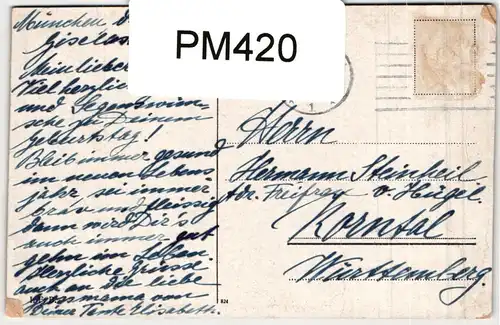 München d
Giselas
Mein lieber
Viel herzlic
und Segenswün-
sche zu Deinem
Geburtstag!
Bleib immer gesund
im neuen Lebens
jahr sei immer
brav und fleissig
dann wird Dir's
auch immer gut
gehn im Leben.
Herzliche Grüsse
auch an die liebe
mama von
Deine Tante Elisabeth.
PM420
1
Herrn
Hermann
adr. Freifrau v. Hügel
Korntal
Württemberg.
824